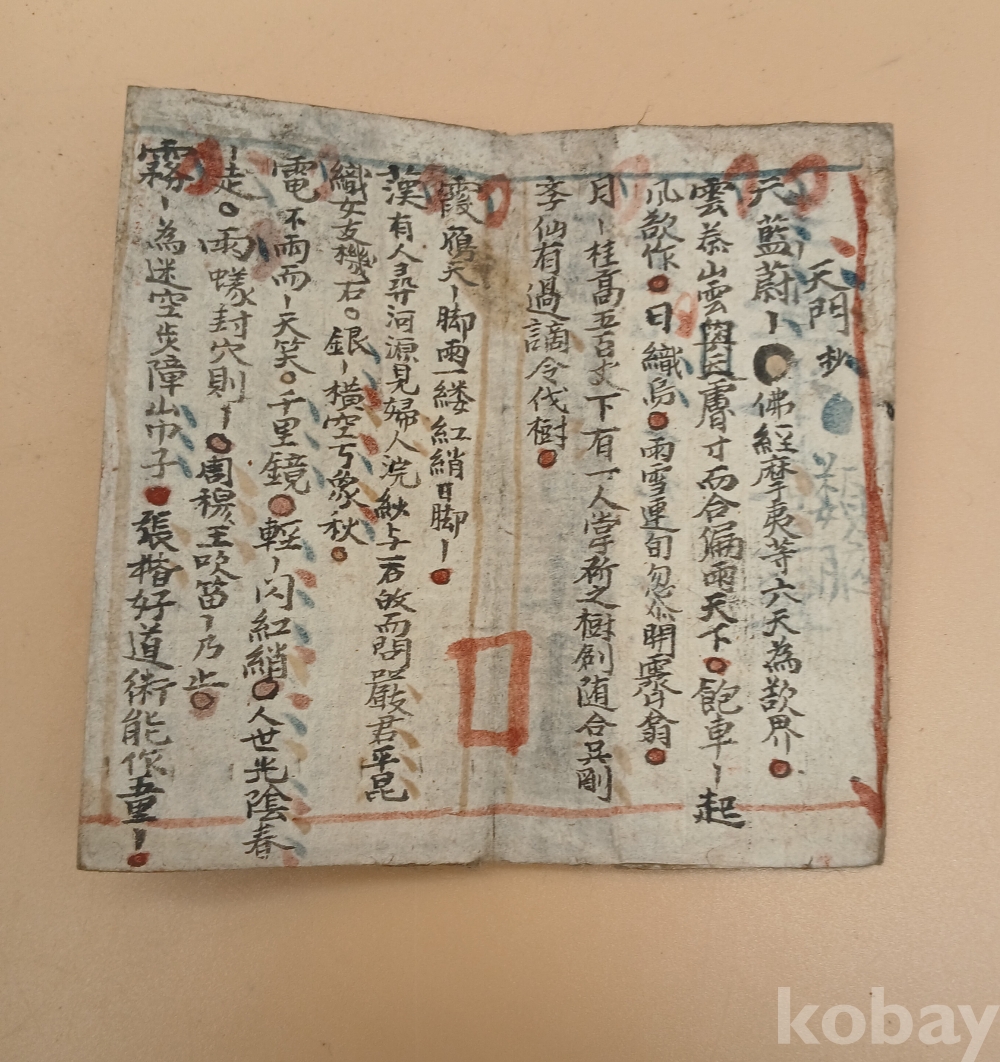 天門 抄
天藍蔚〡 佛経摩夷等六天為欲界〡
雲泰山雲興之膚寸而合徧雨天下 飽車〡起
風欲作 日織烏 雨雪連旬忽然明霽 翁
月〡桂高五百丈下有一人常斫之樹創随合吳剛
李仙有過謫令伐樹
霞鴈天〡脚雨一縷紅綃日脚〡
漢有人尋河源見婦人浣紗与一石故而問嚴君平昆
織女支機石 銀〡橫空亏象秋
電不雨而〡天笑 千里鏡 輕〡閃紅綃 人世光陰春
〡走 雨蟻封穴則〡 周穆王吹笛〡乃止
霧〡為迷空步障山巾子 張楷好道術能作五里〡
kobay